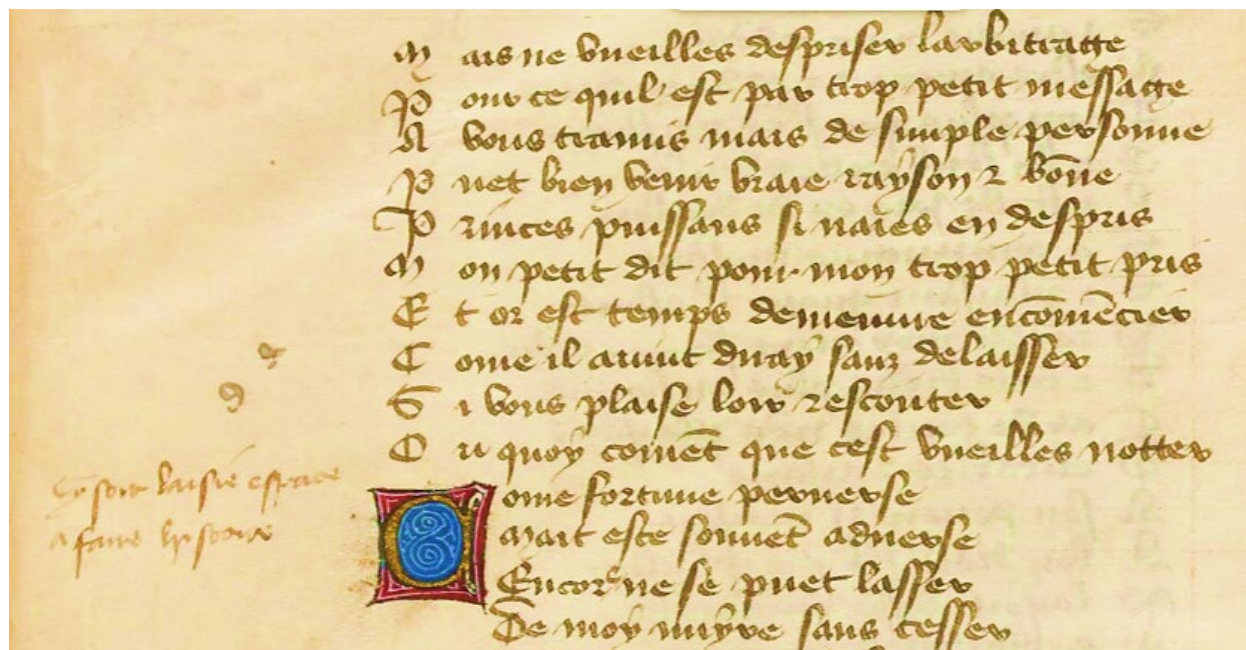 M ais ne vueilles despriser larbitrage
P our ce quil est par trop petit messatge
A vous tramis mais de simple personne
P uet bien venir vraie rayson & bōne
P rinces puissans si naies en despris
M on petit dit pour mon trop petit pris
E t or est temps demeuure encōmēcier
C ome il auint duray sanz delaisser
S i vous plaise loir & escouter
O u quoy comēt que cest vueilles notter
Cy soit laisie espace
a faire hystoire
C ome fortune peruerse
Mait este souuēt aduerse
Encor ne se puet lasser
De moy nuyre sans cesser